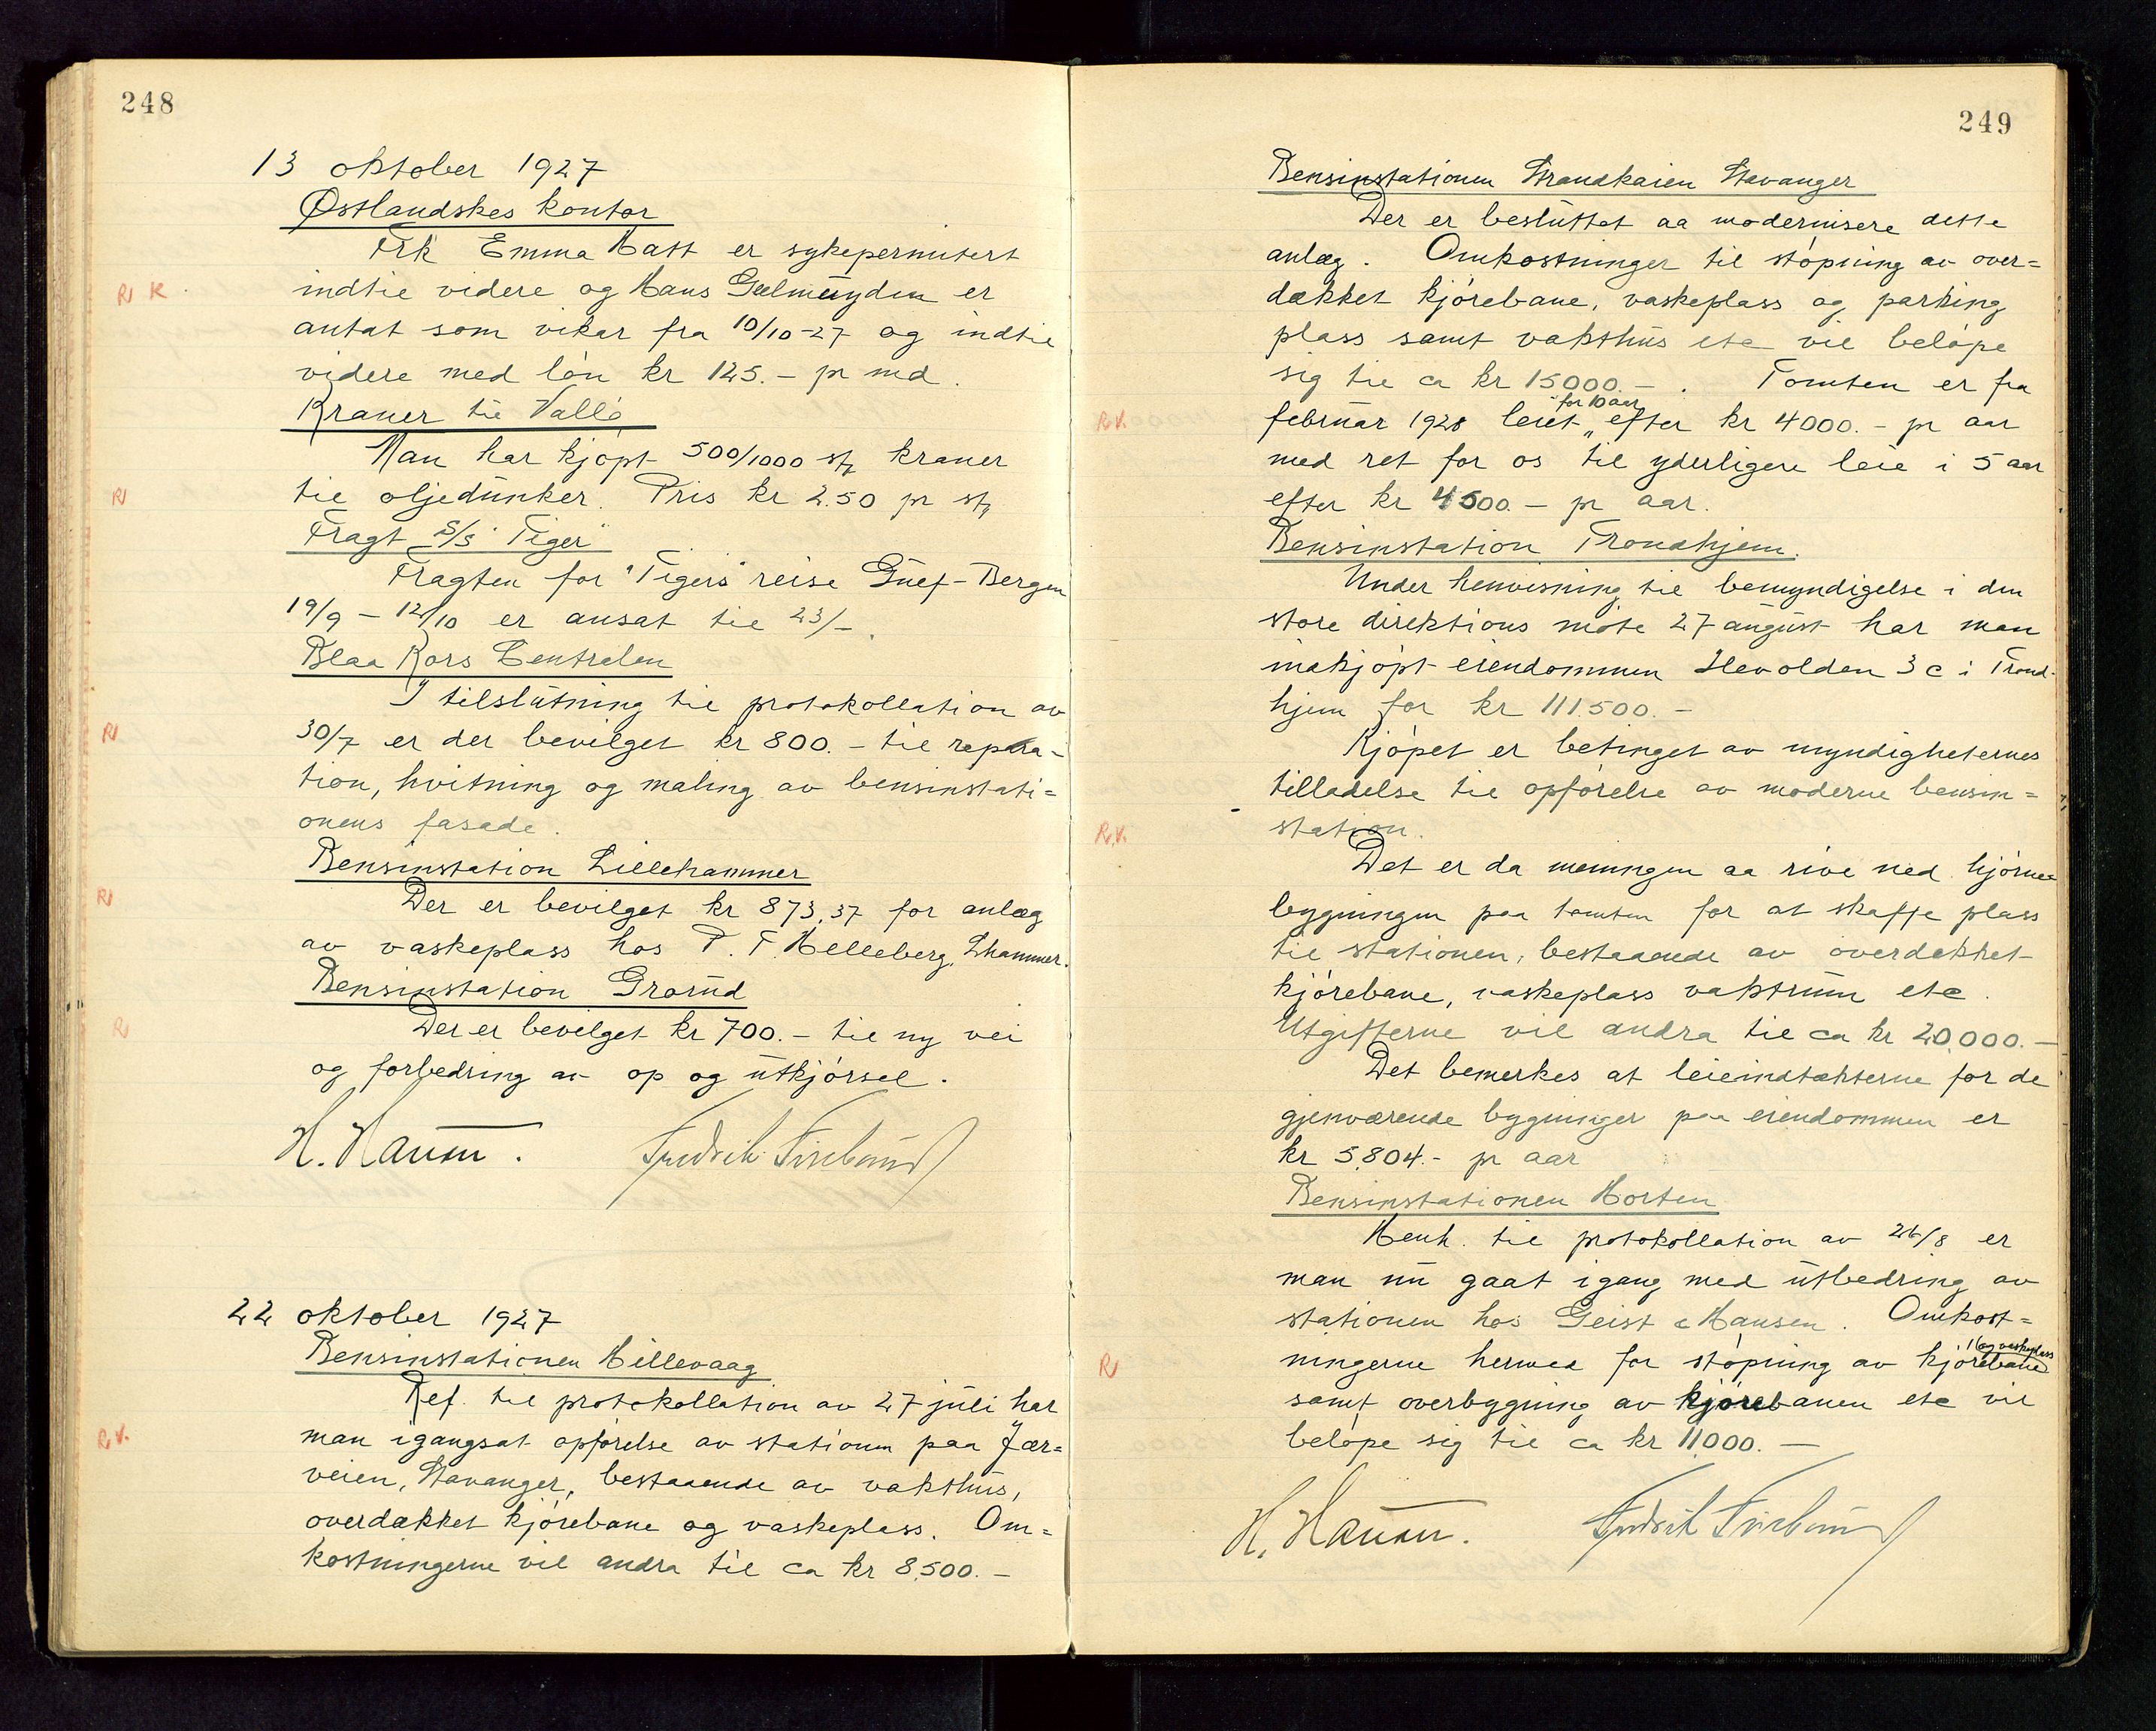 248
13 oktober 1927
Østlandskes kontor
Frk Emma Hatt er sykepermitert
R K
indtil videre og Hans Gulmeyden er
antat som vikar fra 10/10-27 og indtil
videre med løn kr 125.- pr md.
Kraner til Vallø
Man har kjøpt 500/1000 st, kraner
R
til oljedunker. Pris kr 2.50 pr st,
Fragt S/S "Tiger"
Fragten for "Tigers" reise Gulf-Bergen
19/9 - 12/10 er ansat til 23/-.
Blaa Kors Centralen
I tilslutning til protokollation av
R
30/7 er der bevilget kr 800.- til repara-
tion, hvitning og maling av bensinstati=
onens fasade.
Bensinstation Lillehammer
R
Der er bevilget kr 873,37 for anlæg
av vaskeplass hos P. T. Helleberg, Lhammer.
Bensinstation Grorud
R
Der er bevilget kr 700.- til ny vei
og forbedring av op og utkjørsel.
H. Hansen. Fredrik Fineburd
22 oktober 1927
Bensinstationen Hillevaag
Ref. til protokollation av 27 juli har
R.V.
man igangsat opførelse av stationen paa Jær=
veien, Stavanger, bestaaende av vakthus,
overdækket kjørebane og vaskeplass. Om=
kostningerne vil andra til ca kr 8.500.-
249
Bensinstationen Strandkaien Stavanger
Der er besluttet aa modernisere dette
anlæg. Omkostninger til støpning av over=
dækket kjørebane, vaskeplass og parking
plass samt vakthus etc vil beløpe
sig til ca kr 15000.-. Tomten er fra
for 10 aar
R.V.
februar 1928 leiet " efter kr 4000.- pr aar
med ret for os til yderligere leie i 5 aar
efter kr 4500.- pr aar.
Bensinstation Trondhjem.
Under henvisning til bemyndigelse i den
store direktions møte 27 august har man
indkjøpt eiendommen Ilevolden 3c i Trond-
hjem for kr 111.500.-
Kjøpet er betinget av myndigheternes
tilladelse til opførelse av moderne bensin=
R.V.
station.
Det er da meningen aa rive ned hjørne=
bygningen paa tomten for at skaffe plass
til stationen, bestaaende av overdækket
kjørebane, vaskeplass vaktrum etc.
Utgifterne vil andra til ca kr 20.000.-
Det bemerkes at leieindtækterne for de
gjenværende bygninger paa eiendommen er
kr 5.804.- pr aar
Bensinstationen Horten
Henh. til protokollation av 26/8 er
man nu gaat igang med utbedring av
stationen hos Geist & Hansen. Omkost=
og vaskeplass
R
ningerne hermed for støpning av kjørebane
samt overbygning av kjørebanen etc vil
beløpe sig til ca kr 11.000.-
H. Hansen. Fredrik Fineburd